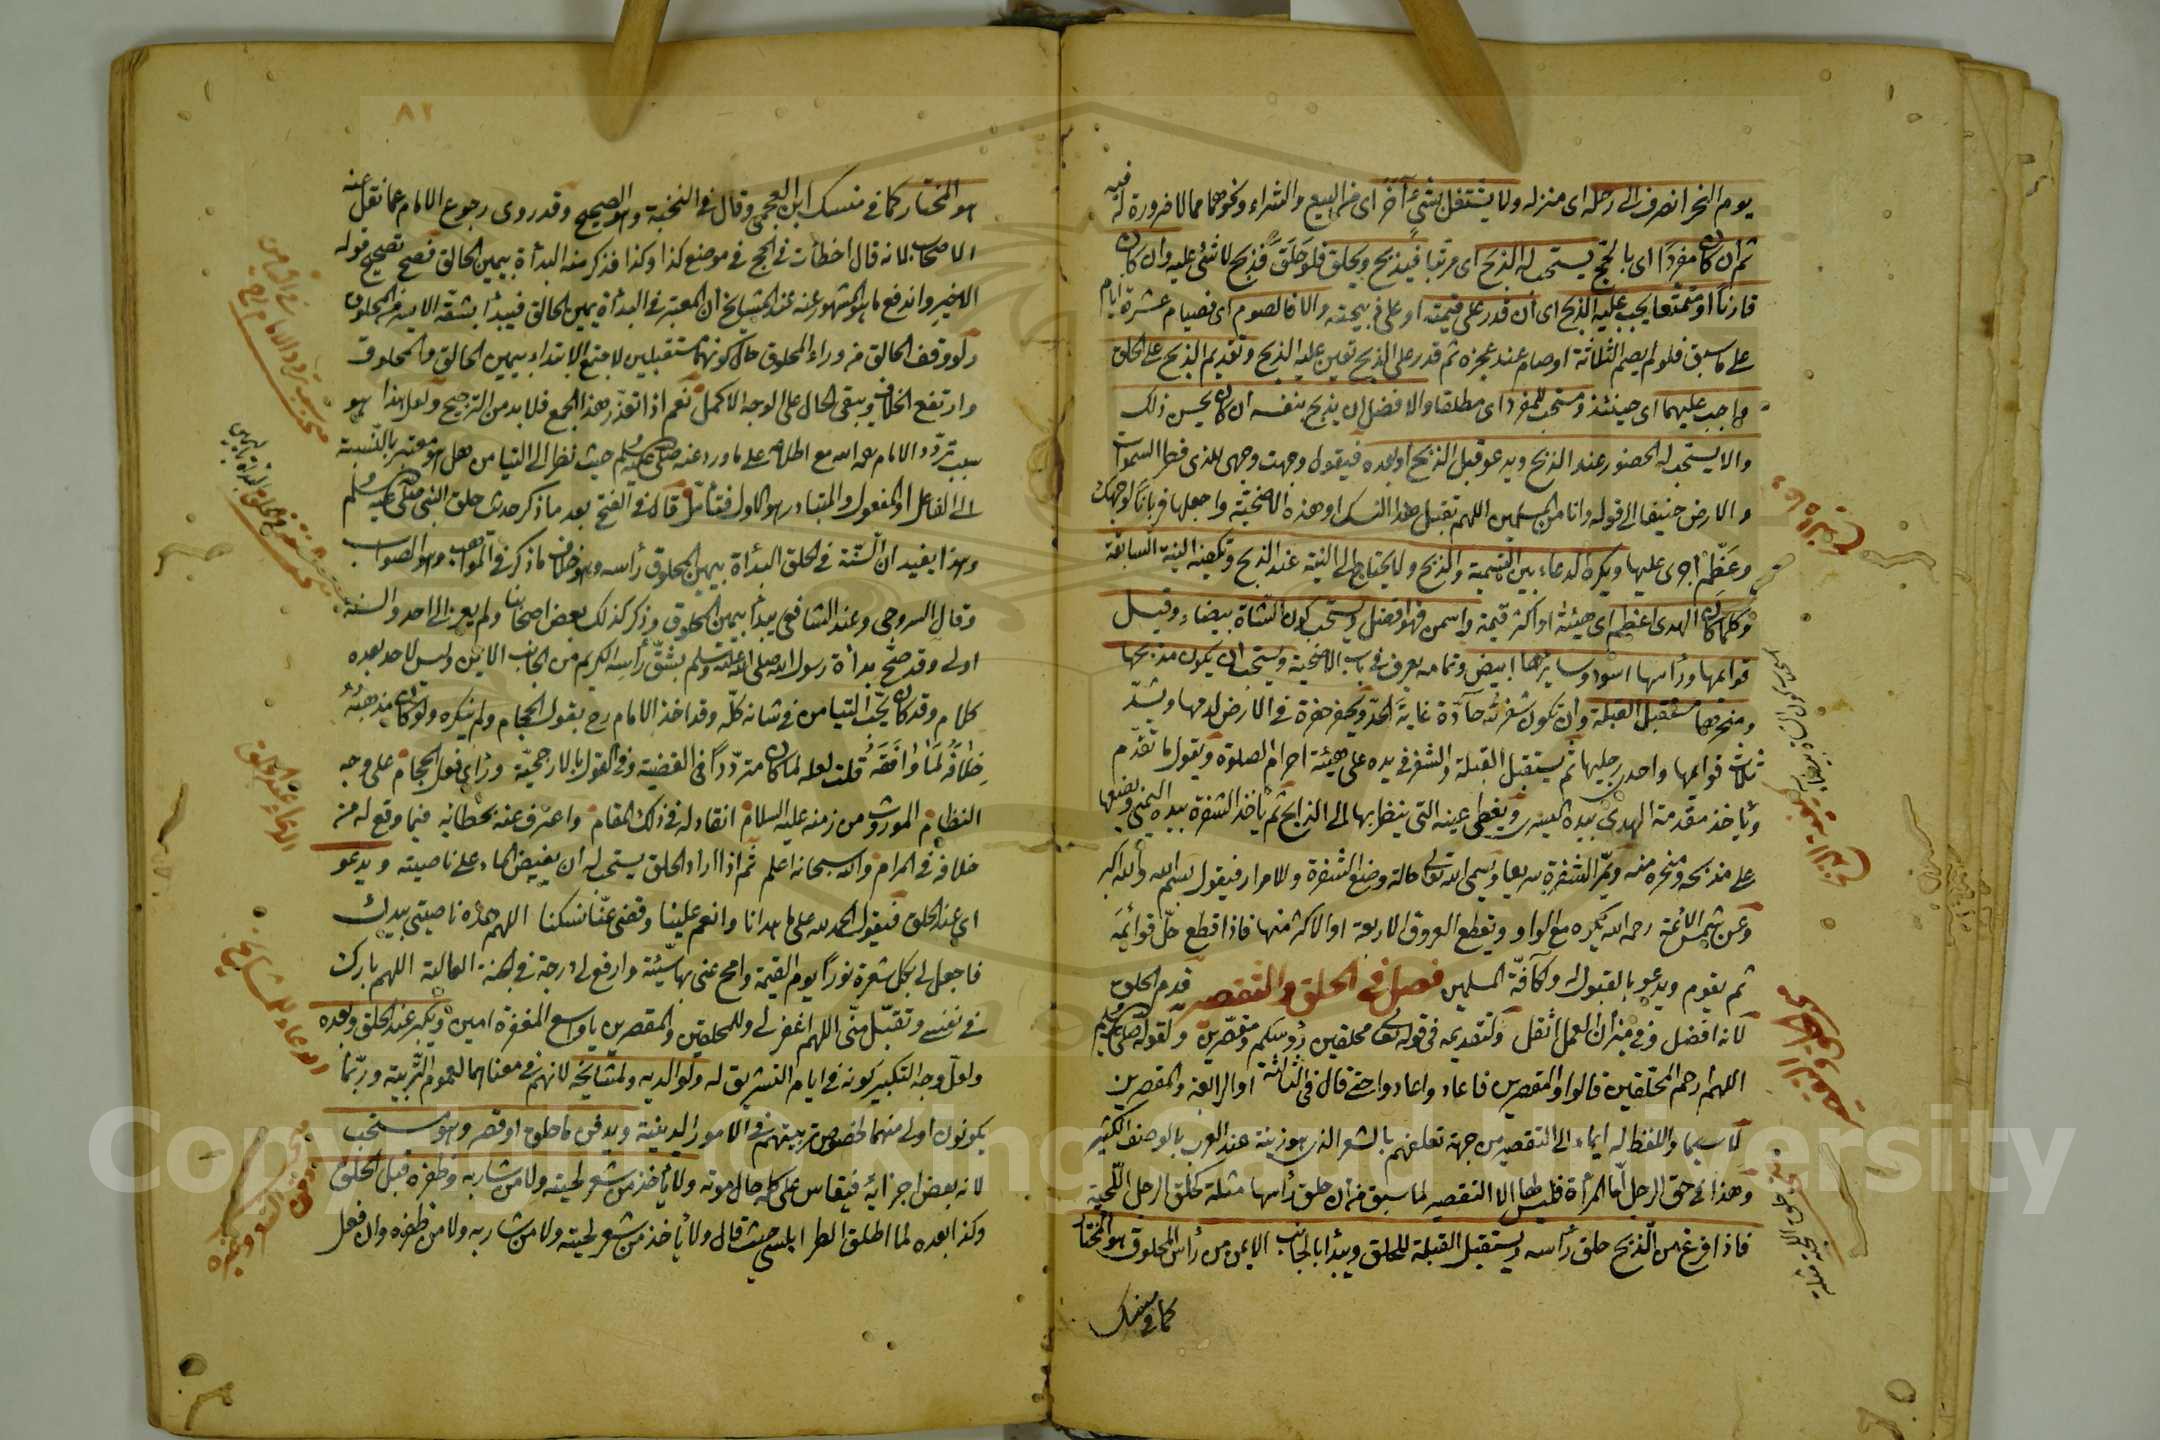 يوم النحر انصرف الى رحله اى منزله ولا يشتغل بشئ آخر اى من البيع والشراء ونحوهما مما لا ضرورة له فيه
ثم ان كان مفردا اى بالحج يستحب له الذبح اى مرتبا فيذبح ويحلق فلو حلق فذبح لا شئ عليه وان كان
قارنا او متمتعا يجب عليه الذبح اى ان قدر على قيمته او على ذبيحته والا فالصوم اى فصيام عشرة ايام
على ما سبق فلو لم يصم الثلاثة او صام عند عجزه ثم قدر على الذبح تعين عليه الذبح وتقديم الذبح على الحلق
واجب عليهما اى حينئذ ومستحب للمفرد اى مطلقا والافضل ان يذبح بنفسه ان كان يحسن ذلك
والا يستحب له الحضور عند الذبح ويدعو قبل الذبح او بعده فيقول وجهت وجهى للذى فطر السموات
والارض حنيفا الى قوله وانا من المسلمين اللهم تقبل هذا النسك او هذه الاضحية واجعلها قربانا لوجهك
وعظم اجرى عليها ويكره الدعاء بين التسمية والذبح ولا يحتاج الى النية عند الذبح وتكفيه النية السابقة
وكلما كان الهدى اعظم اى هيئة او اكثر قيمة واسمن فهو افضل ويستحب كون الشاة بيضاء وقيل
قوائمها ورأسها اسود وسايرها ابيض وتمامه يعرف فى باب الاضحية ويستحب ان يكون مذبحها
ومنحرها مستقبل القبلة وان تكون شفرته حآدة غاية الحد ويحفر حفرة فى الارض لدمها ويشد
ثلاث قوائمها واحدى رجليها ثم يستقبل القبلة والشفر فى يده على هيئة احرام الصلوة ويقول ما تقدم
ويأخذ مقدمة الهدى بيده اليسرى ويغطى عينه التى ينظر بها الى الذابح ثم يأخذ الشفرة بيده اليمنى ويضعها
على مذبحه ومنحره منه ويمر الشفرة سريعا ويسمى الله تعالى حالة وضع الشفرة والامرار فيقول بسم الله والله اكبر
وعن شمس الائمة رحمه الله يكره مع الواو ويقطع العروق الاربعة او الاكثر منها فاذا قطع حل قوائمه
ثم يقوم ويدعو بالقبول وكآفة المسلمين فصل فى الحلق والتقصير قدم الحلق
لانه افضل وفى ميزان العمل اثقل ولتقديمه فى قوله تعالى محلقين رؤسكم ومقصرين ولقوله صلى الله عليه وسلم
اللهم ارحم المحلقين قالوا والمقصرين فاعاد واعادوا حتى قال فى الثالثة او الرابعة والمقصرين
لا سيما واللفظ له ايماء الى التقصير من جهة تعلقهم بالشعر الذى هو زينة عند العرب بالوصف الكثير
وهذا فى حق الرجل اما المرأة فليس لها الا التقصير لما سبق من ان حلق رأسها مثلة كحلق الرجل اللحية
فاذا فرغ من الذبح حلق رأسه ويستقبل القبلة للحلق ويبدأ بالجانب الايمن من رأس المحلوق هو المختار
كما فى منسك
٨٢
هو المختار كما فى منسك ابن العجمى وقال فى النخبة وهو الصحيح وقد روى رجوع الامام عما نقل عنه
الاصحاب لانه قال اخطأت فى الحج فى موضع كذا وكذا فذكر منه البدأة بيمين الحالق فصح تصحيح قوله
الاخير واندفع ما هو المشهور عنه عند المشايخ ان المعتبر فى البدأة يمين الحالق فيبدأ بشقه الايسر من المحلوق
ولو وقف الحالق من وراء المحلوق حال كونهما مستقبلين لاجتمع الابتداء بيمين الحالق والمحلوق
وارتفع الخلاف ويبقى الحال على الوجه الاكمل نعم اذا تعذر هذا الجمع فلا بد من الترجيح ولعل هذا هو
سبب تردد الامام رحمه الله مع اطلاعه على ما ورد عنه صلى الله عليه وسلم حيث نظر الى التيامن هل هو معتبر بالنسبة
الى الفاعل او المفعول والمتبادر هو الاول فتأمل قال فى الفتح بعد ما ذكر حديث حلق النبى صلى الله عليه وسلم
وهذا يفيد ان السنة فى الحلق البدأة بيمين المحلوق رأسه وهو خلاف ما ذكر فى المذهب وهو الصواب
وقال السروجى وعند الشافعى يبدأ بيمين المحلوق وذكر كذلك بعض اصحابنا ولم يعز الى احد والسنة
اولى وقد صح بدأة رسول الله صلى الله عليه وسلم بشق رأسه الكريم من الجانب الايمن وليس لاحد بعده
كلام وقد كان يحب التيامن فى شانه كله وقد اخذ الامام رح بقول الحجام ولم ينكره ولو كان مذهبه
خلافه لما وافقه قلت لعله لما كان مترددا فى القضية وفى القول بالارجحية ورأى فعل الحجام على وجه
النظام الموروث من زمنه عليه السلام انقاد له فى ذلك المقام واعترف عنه بخطائه فيما وقع له من
خلافه فى المرام والله سبحانه اعلم ثم اذا اراد الحلق يستحب له ان يفيض الماء على ناصيته ويدعو
اى عند الحلق فيقول الحمد لله على ما هدانا وانعم علينا وقضى عنا نسكنا اللهم هذه ناصيتى بيدك
فاجعل لى بكل شعرة نورا يوم القيمة وامح عنى بها سيئة وارفع لى درجة فى الجنة العالية اللهم بارك
فى نفسى وتقبل منى اللهم اغفر لى وللمحلقين والمقصرين يا واسع المغفرة امين ويكبر عند الحلق وبعده
ولعل وجه التكبير كونه فى ايام التشريق له ولوالديه ولمشايخه لانهم فى معناهما لعموم التربية وربما
يكونون اولى منهما لخصوص تربيتهم فى الامور الدينية ويدفن ما حلق او قصر وهو مستحب
لانه بعض اجزائه فيقاس على كله حال موته ولا يأخذ من شعر لحيته ولا من شاربه وظفره قبل الحلق
وكذا بعده لما اطلق الطرابلسى حيث قال ولا يأخذ من شعر لحيته ولا من شاربه ولا من ظفره وان فعل
Copyright © King Saud University